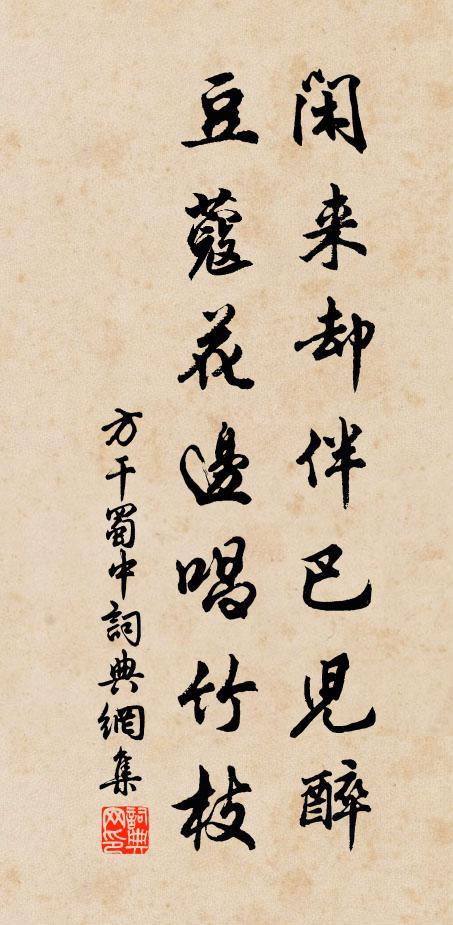 闲来却伴巴兒醉
豆蔻花邊唱竹枝
方干蜀中詞典網集
詞典网印